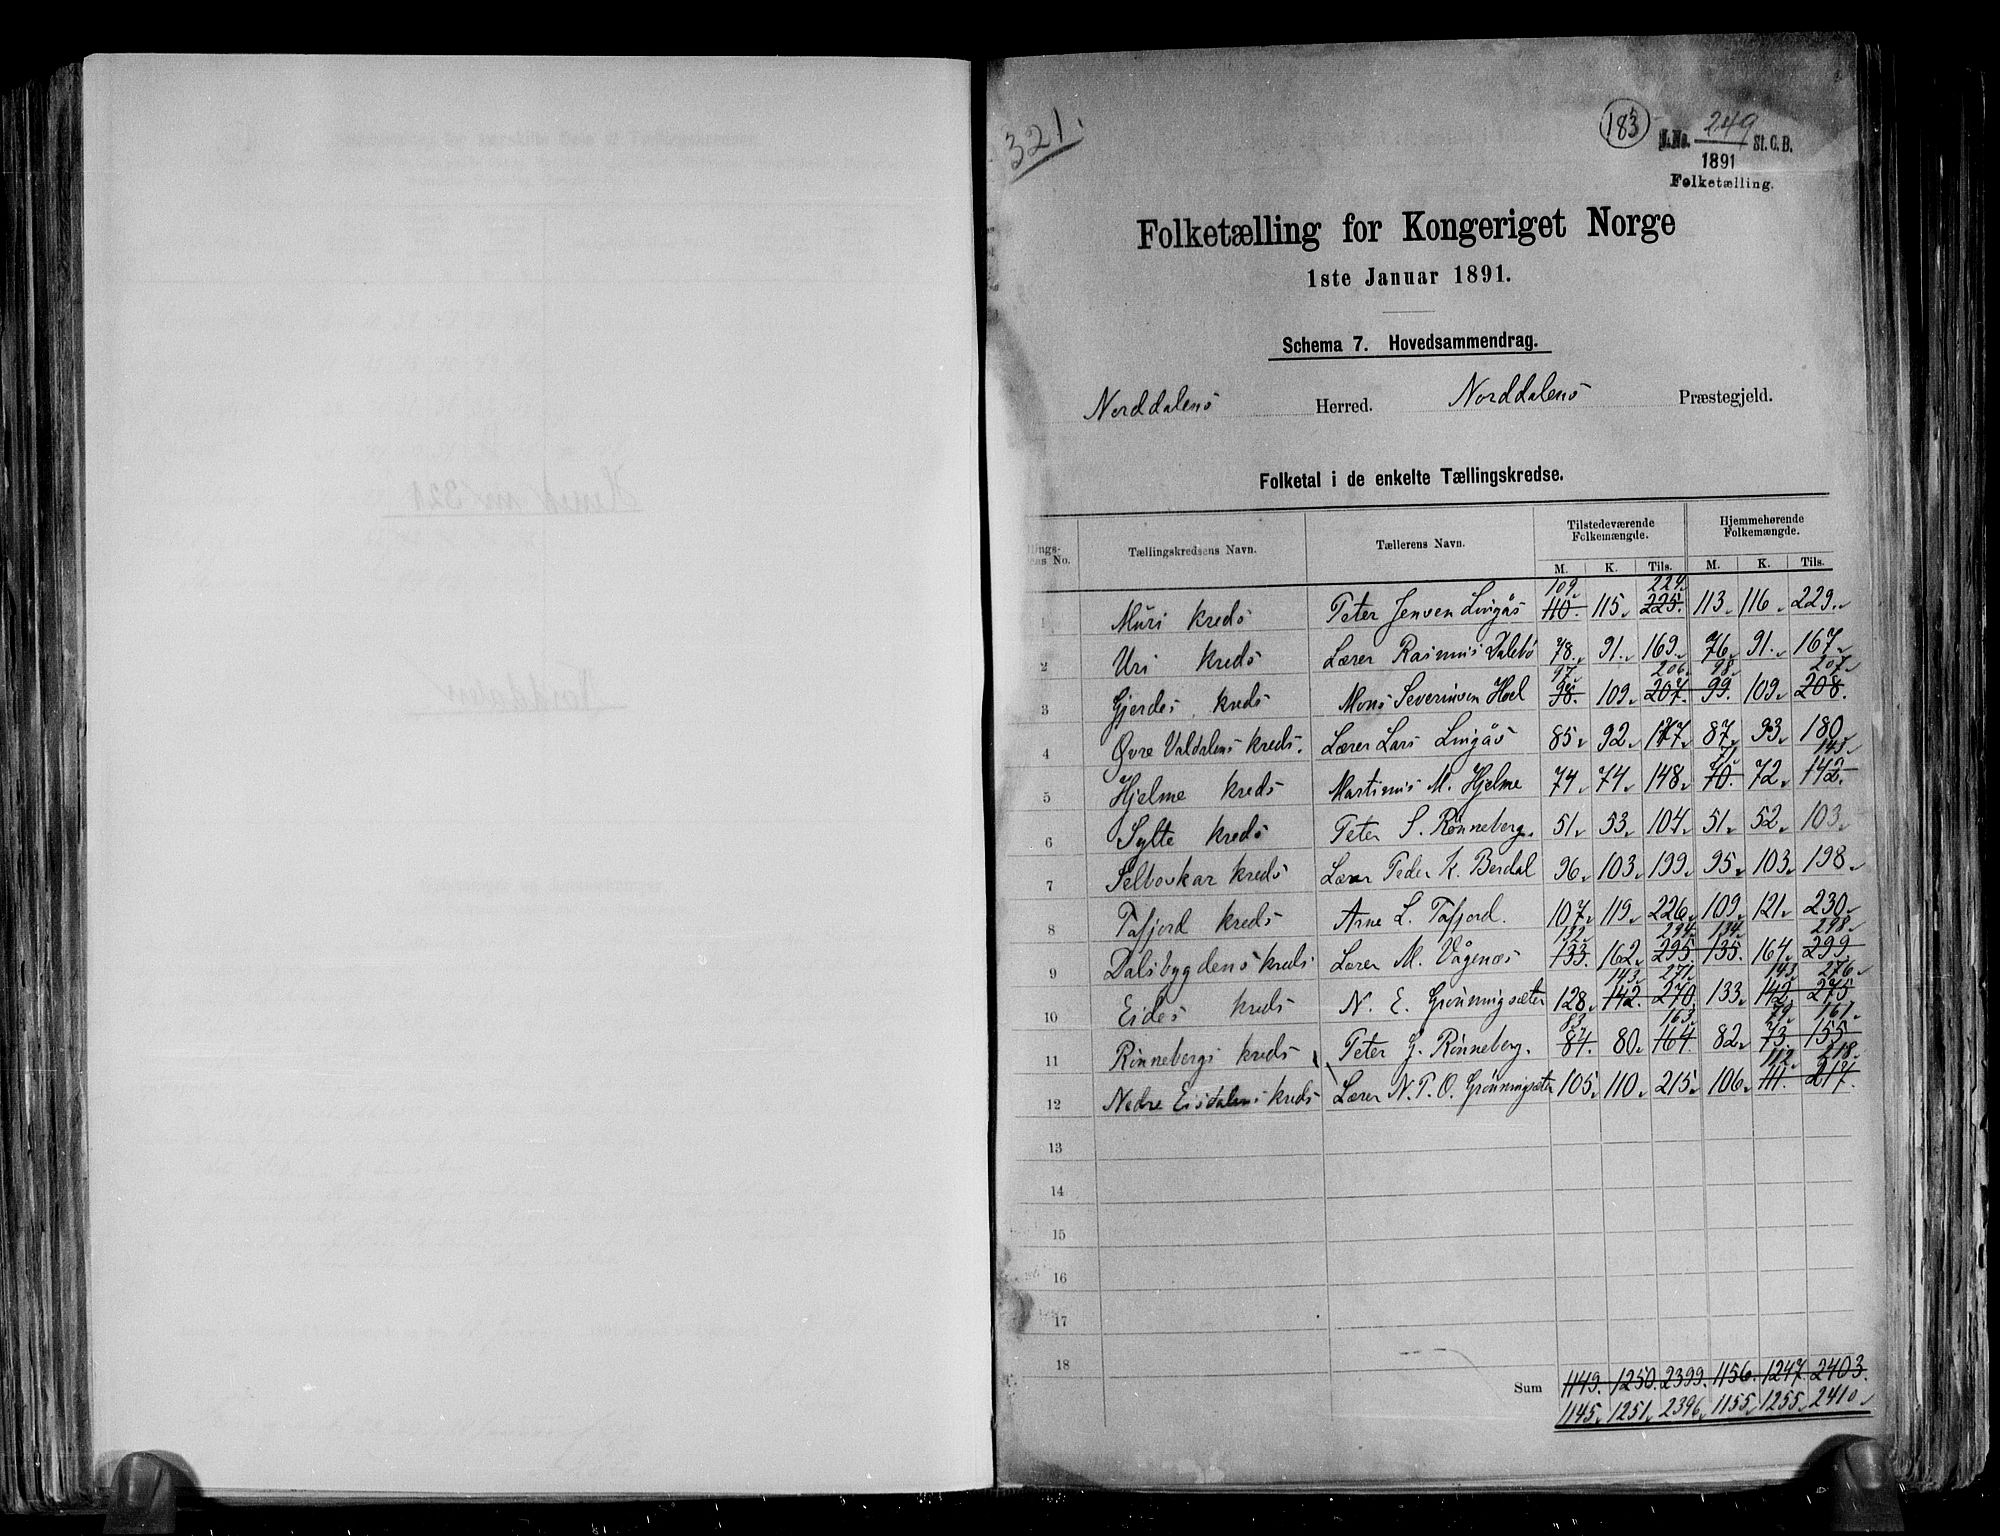 321.
183
J.No. 249 St.C.B.
1891
Folketælling.
Folketælling for Kongeriget Norge
1ste Januar 1891.
Schema 7. Hovedsammendrag.
Norddalens Herred. Norddalens Præstegjeld.
Folketal i de enkelte Tællingskredse.
Tællingskredsens Navn. Tællerens Navn. Tilstedeværende Folkemængde. Hjemmehørende Folkemængde.
M. K. Tils. M. K. Tils.
109 224
1 Muri kreds Peter Jensen Lingås 110. 115 225. 113 116 229
2 Uri kreds Lærer Rasmus Dalebø 78 91 169 76 91 167
97 206 98 207
3 Gjerdes kreds Mons Severinsen Hoel 98. 109 207. 99. 109 208.
4 Øvre Valdalens kreds. Lærer Lars Lingås 85 92 177 87 93 180
71 143
5 Hjelme kreds Martinus M. Hjelme 74 74 148 70. 72 142.
6 Sylte kreds Peter S. Rønneberg. 51 53 104 51 52 103
7 Selboskar kreds Lærer Peder K. Berdal 96 103 199 95 103 198
8 Tafjord kreds Arne L. Tafjord. 107 119 226 109 121 230
132 294 134 298
9 Dalsbygdens kreds Lærer M. Vågenæs 133. 162 295. 135. 164 299
143 271 143 276
10 Eides kreds N. E. Grønningsæter 128 142. 270 133 142 275
83 163 79 161
11 Rønnebergs kreds Peter G. Rønneberg. 84. 80 164. 82 73. 155
112 218
12 Nedre Eisdalens kreds Lærer N. P. O. Grønningsæter 105 110 215 106 111. 217.
13
14
15
16
17
18
Sum 1149. 1250. 2399. 1156. 1247. 2403.
1145 1251 2396 1155 1255 2410